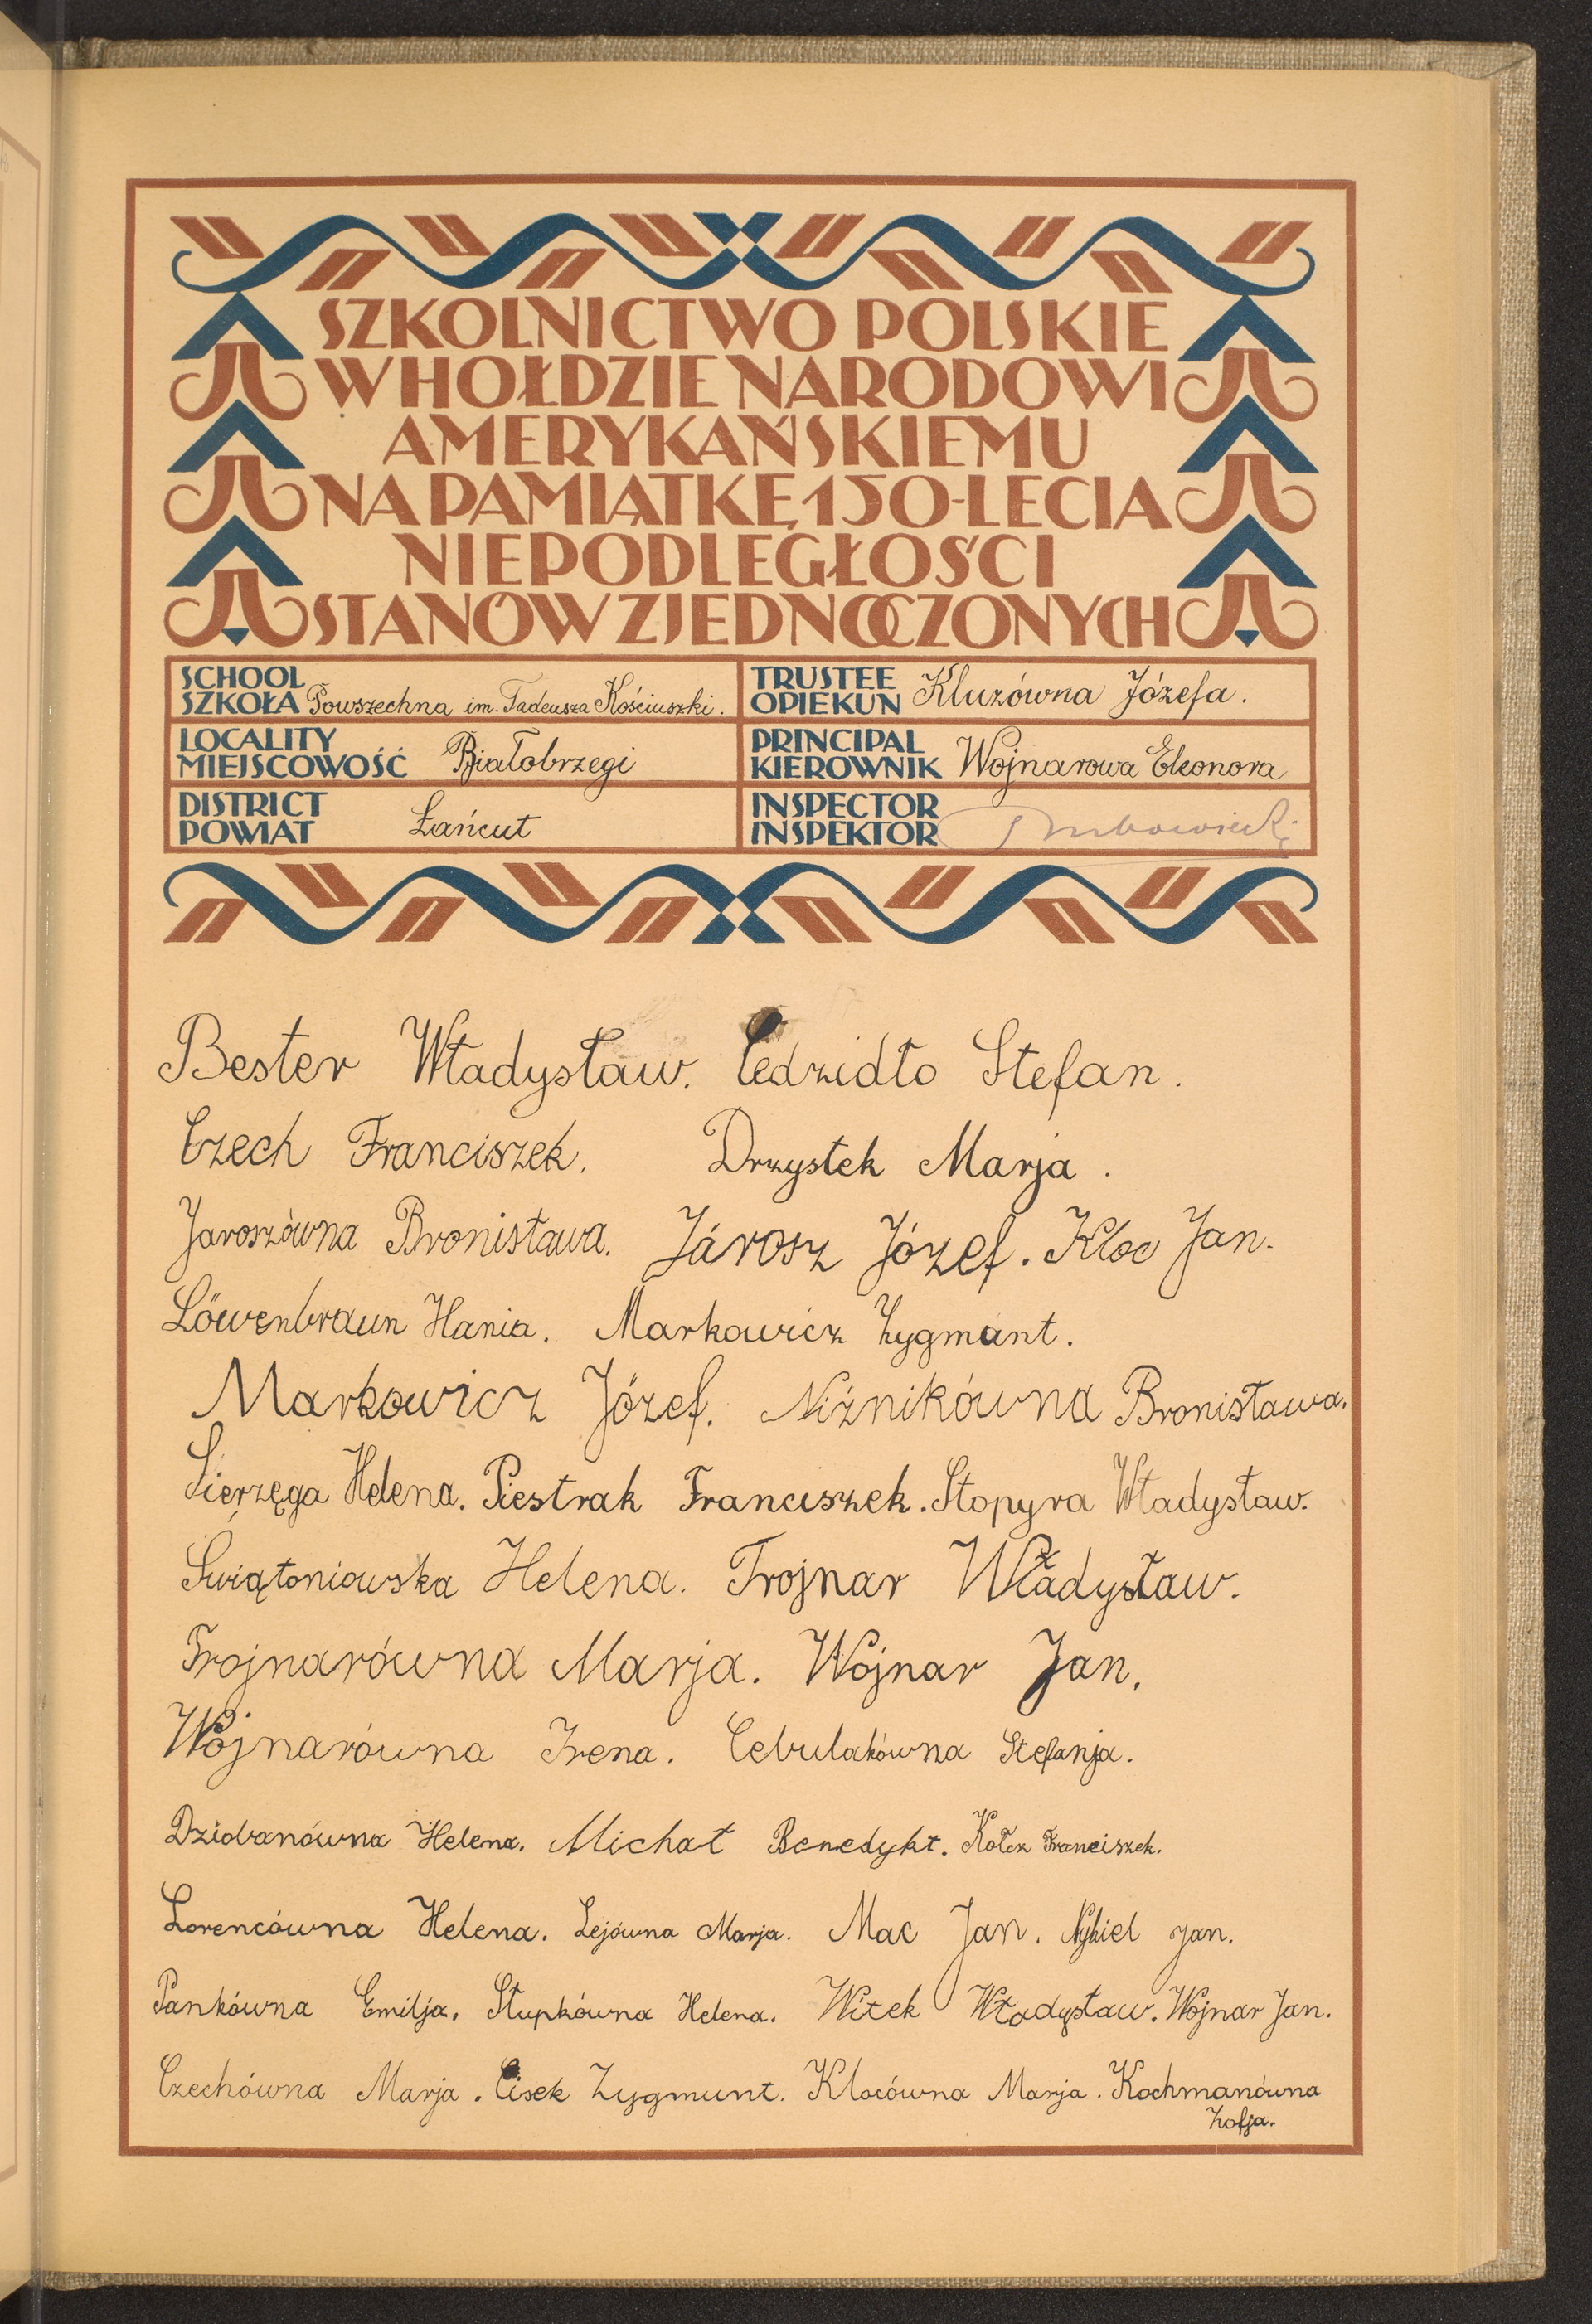 SZKOLNICTWO POLSKIE
W HOŁDZIE NARODOWI
AMERYKAŃSKIEMU
NA PAMIĄTKĘ 150-LECIA
NIEPODLEGŁOŚCI
STANÓW ZJEDNOCZONYCH
SCHOOL
SZKOŁA Powszechna im. Tadeusza Kościuszki.
TRUSTEE
OPIEKUN Kluzówna Józefa.
LOCALITY
MIEJSCOWOŚĆ Białobrzegi
PRINCIPAL
KIEROWNIK Wojnarowa Eleonora
DISTRICT
POWIAT Łańcut
INSPECTOR
INSPEKTOR
Bester Władysław. Cedzidło Stefan.
Czech Franciszek. Drzystek Marja.
Jaroszówna Bronisława. Járosz Józef. Kloc Jan.
Löwenbraun Hania. Markowicz Zygmunt.
Markowicz Józef. Niźnikówna Bronisława.
Sierzęga Helena. Piestrak Franciszek. Stopyra Władysław.
Świątoniowska Helena. Trojnar Władysław.
Trojnarówna Marja. Wojnar Jan.
Wojnarówna Irena. Cebulakówna Stefanja.
Dziobanówna Helena. Michał Benedykt. Kołcz Franciszek.
Lorencówna Helena. Lejówna Marja. Mac Jan. Nykiel Jan.
Pankówna Emilja. Słupkówna Helena. Witek Władysław. Wojnar Jan.
Czechówna Marja. Cisek Zygmunt. Klocówna Marja. Kochmanówna
Zofja.